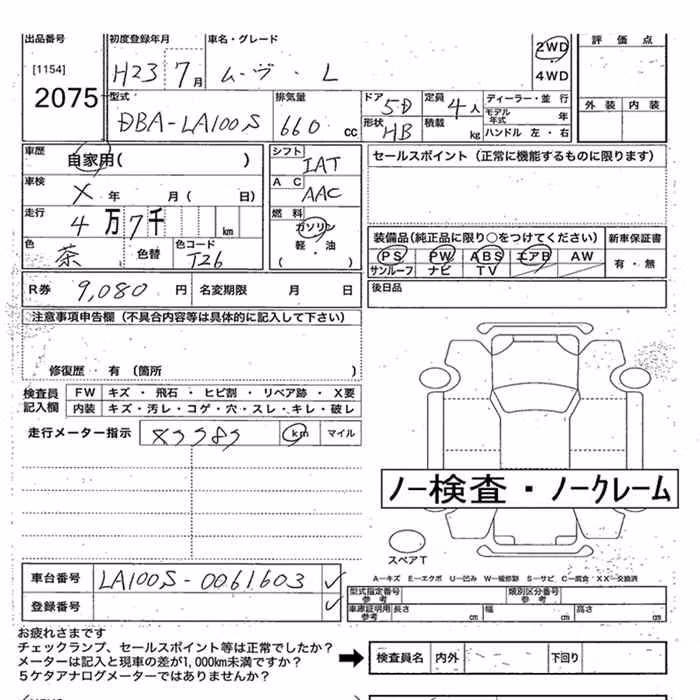 出品番号 初度登録年月 車名・グレード 2WD 評価点
[1154] H23 7月 ムーヴ・L 4WD
2075 型式 排気量 ドア 5D 定員 4人 ディーラー・並行 外装 内装
DBA-LA100S 660cc 形状 HB 積載 kg モデル年式 年
ハンドル 左・右
車歴 自家用( ) シフト IAT セールスポイント(正常に機能するものに限ります)
車検 X 年 月( 日) AC AAC
走行 4万7千 km 燃料 ガソリン
軽・油
( )
装備品(純正品に限り○をつけてください) 新車保証書
色 茶 色替 色コード T26 PS PW ABS エアB AW 有・無
サンルーフ ナビ TV
R券 9,080円 名変期限 月 日 後日品
注意事項申告欄(不具合内容等は具体的に記入して下さい)
修復歴 有(箇所 )
検査員記入欄 FW キズ・飛石・ヒビ割・リペア跡・X要
内装 キズ・汚レ・コゲ・穴・スレ・キレ・破レ
走行メーター指示 km マイル
ノー検査・ノークレーム
スペアT
車台番号 LA100S-0061603 ✓
登録番号 ✓
A-キズ E-エクボ U-凹み W-補修跡 S-サビ C-腐食・XX-交換済
型式指定番号 参考 類別区分番号 参考
車庫証明用 参考 長さ cm 幅 cm 高さ cm
お疲れさまです
チェックランプ、セールスポイント等は正常でしたか?
メーターは記入と現車の差が1,000km未満ですか?
5ケタアナログメーターではありませんか?
検査員名 内外 下回り